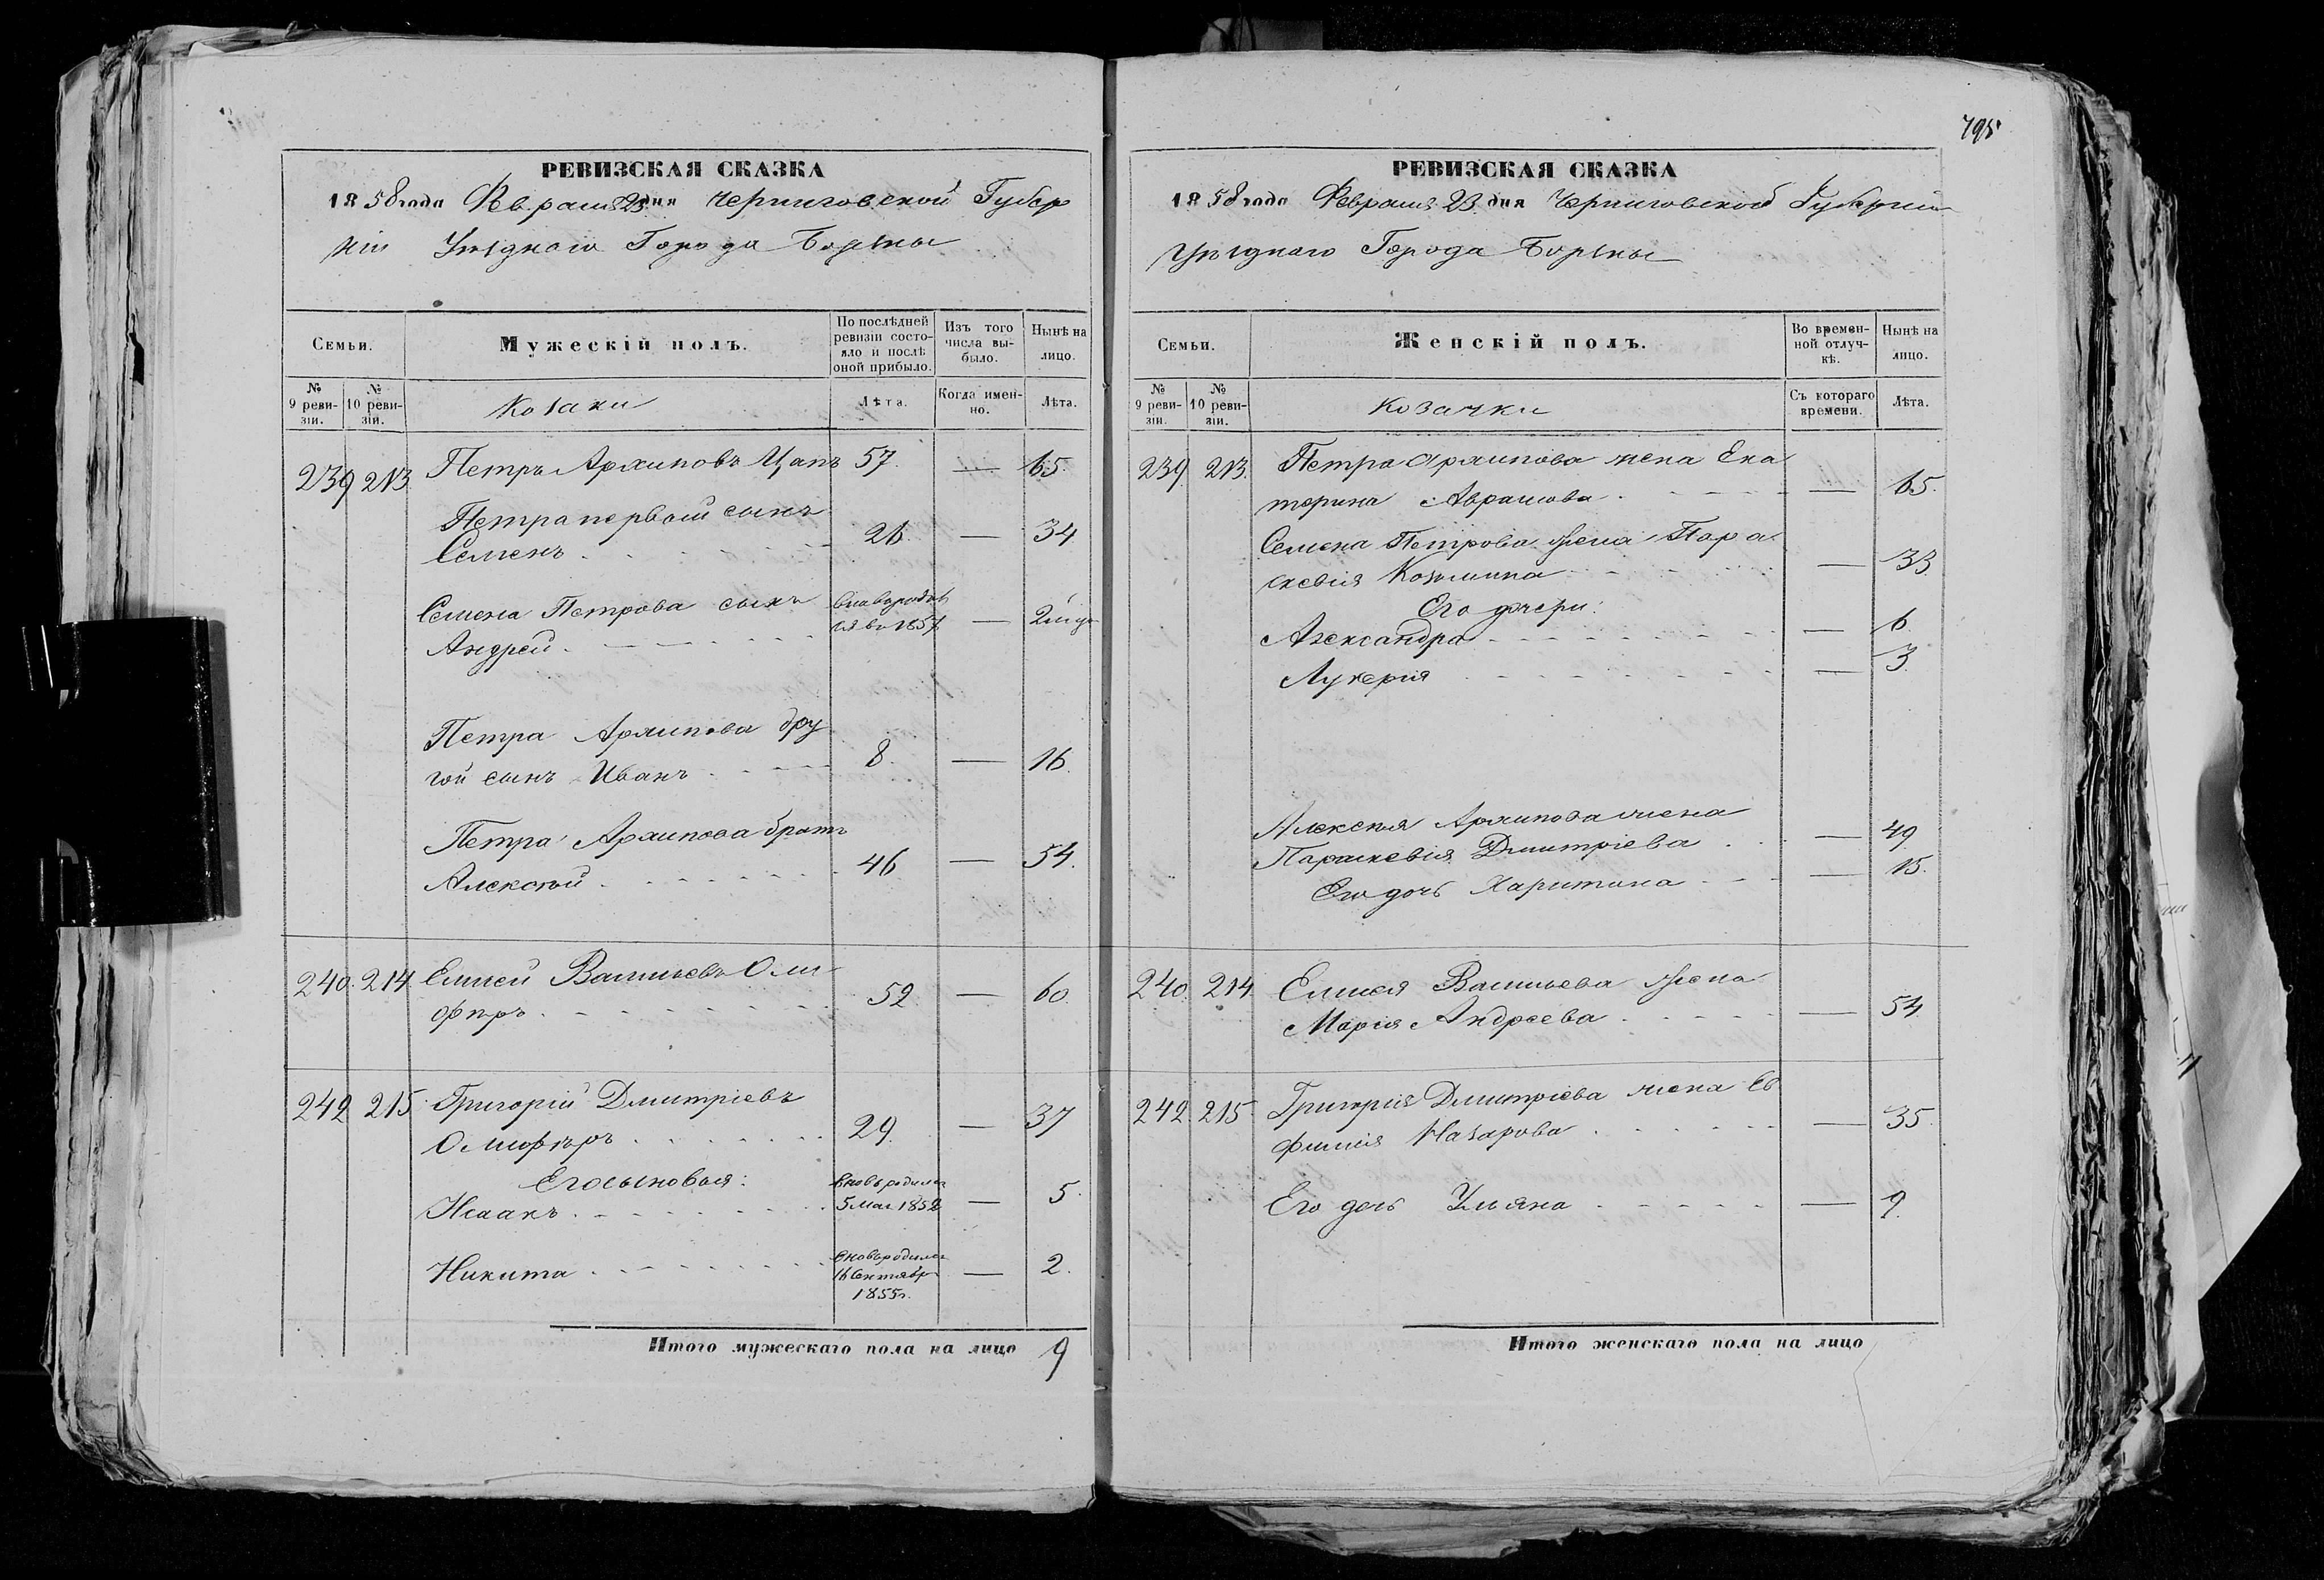 795
РЕВИЗСКАЯ СКАЗКА
1858 года Февраля 23 дня Черниговской Губер
ніи Уѣзднаго Города Борзны
Семьи.
Мужескій полъ.
По послѣдней ревизіи состояло и послѣ оной прибыло.
Изъ того числа выбыло.
Нынѣ на лицо.
№ 9 ревизіи.
№ 10 ревизіи.
Козаки
Лѣта.
Когда именно.
Лѣта.
239 213 Петръ Архиповъ Цапъ 57. — 65.
Петра первый сынъ
Семенъ 26. — 34
Семена Петрова сынъ
Андрей вновь родился во 1857 — 2
Петра Архипова дру
гой сынъ Иванъ 8. — 16.
Петра Архипова братъ
Алексѣй 46 — 54.
240. 214 Елисей Васильевъ Оли
фѣръ 52. — 60.
242 215. Григорій Дмитріевъ
Олифѣръ 29. — 37
Его сыновья:
Исаакъ вновь родился 5 мая 1852 — 5.
Никита вновь родился 16 Сентября 1855 г. — 2.
Итого мужескаго пола на лицо 9
РЕВИЗСКАЯ СКАЗКА
1858 года Февраля 23 дня Черниговской Губерніи
Уѣзднаго Города Борзны
Семьи.
Женскій полъ.
Во временной отлучкѣ.
Нынѣ на лицо.
№ 9 ревизіи.
№ 10 ревизіи.
Козачки
Съ котораго времени.
Лѣта.
239. 213. Петра Архипова жена Ека
терина Аврамова — 65.
Семена Петрова жена Пара
скевія Козьмина — 33.
Его дочери:
Александра — 6
Лукерія — 3.
Алексѣя Архипова жена
Параскевія Дмитріева — 49
Его дочь Харитина — 15.
240. 214. Елисея Васильева жена
Марія Андреева — 54.
242 215. Григорія Дмитріева жена Ев
фимія Назарова — 35.
Его дочь Ульяна — 9.
Итого женскаго пола на лицо